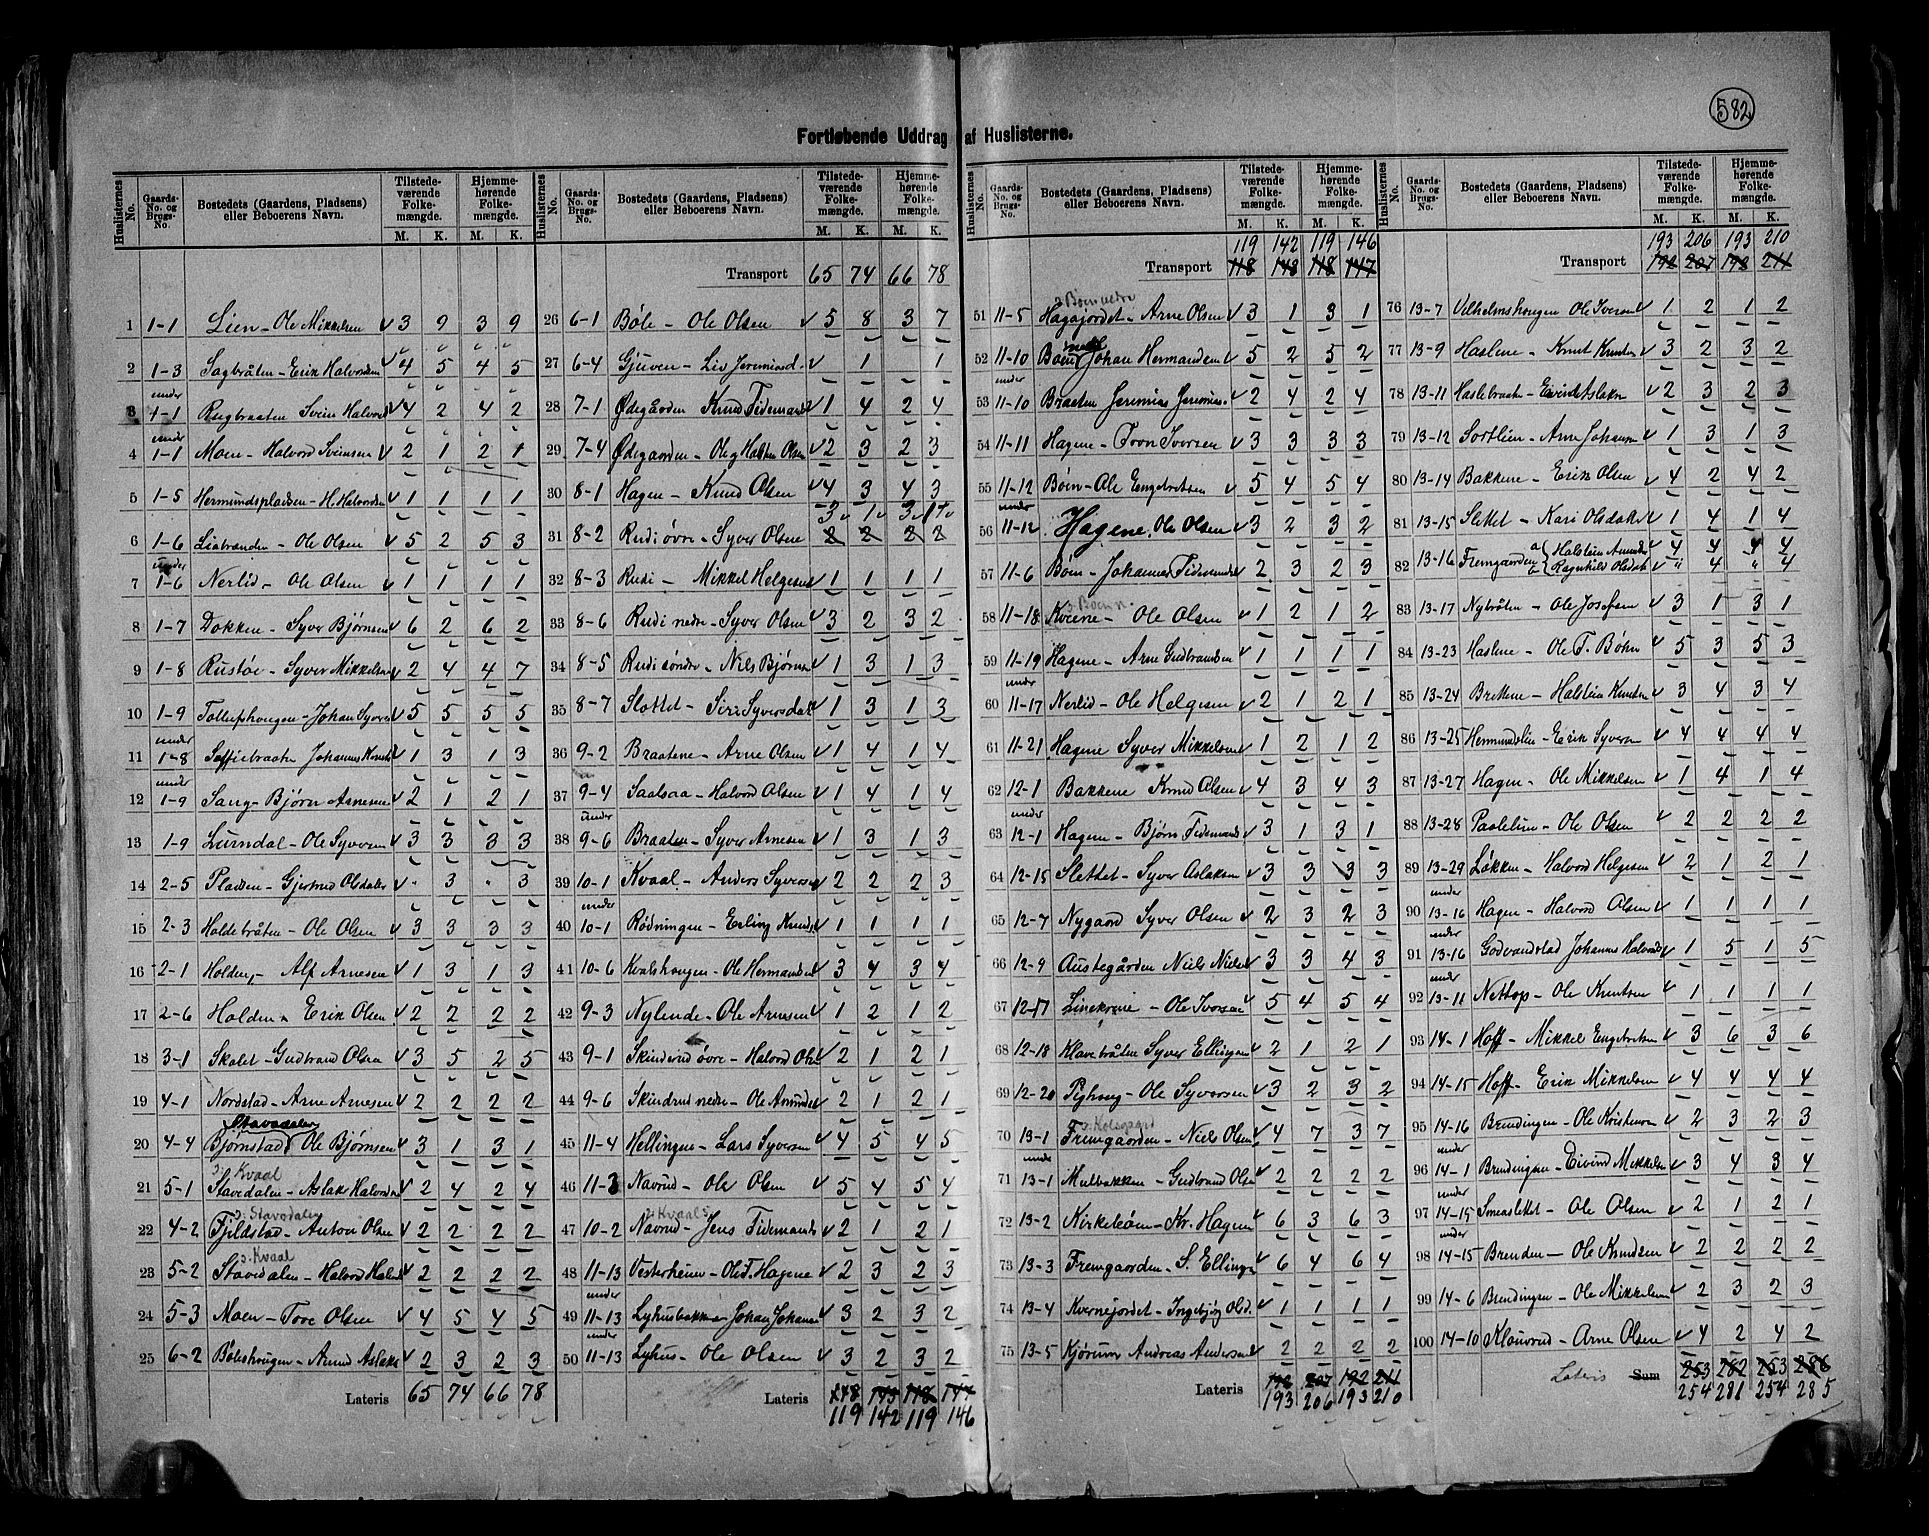 582
Fortløbende Uddrag af Huslisterne.
Huslisternes No. Gaards-No. og Brugs-No. Bostedets (Gaardens, Pladsens) eller Beboerens Navn. Tilstedeværende Folkemængde. M. K. Hjemmehørende Folkemængde. M. K.
1 1-1 Lien - Ole Mikkelsen 3 9 3 9
2 1-3 Sagbråten - Erik Halvordsen 4 5 4 5
3 under 1-1 Rugbraaten Svein Halvord 4 2 4 2
4 under 1-1 Moen - Halvord Sveinsen 2 1 2 1
5 1-5 Hermundspladsen - H. Halvordsen 1 1 1 1
6 1-6 Liastranden - Ole Olsen 5 2 5 3
7 under 1-6 Nerlid - Ole Olsen 1 1 1 1
8 1-7 Dokken - Syver Bjørnsen 6 2 6 2
9 1-8 Rustøe - Syver Mikkelsen 2 4 4 7
10 1-9 Tollefshougen - Johan Syvers 5 5 5 5
11 under 1-8 Johannes 1 3 1 3
12 under 1-9 Sang - Bjørn Arnesen 2 1 2 1
13 1-9 Lurndal - Ole Syversen 3 3 3 3
14 2-5 Pladsen - Gjertrud Olsdatter " 3 " 3
15 2-3 Holdebråten - Ole Olsen 3 3 3 3
16 2-1 Holden - Alf Arnesen 1 3 1 3
17 2-6 Holden - Erik Olsen 2 2 2 2
18 3-1 Skolt - Gudbrand Olsen 3 5 2 5
19 4-1 Nordstad - Arne Arnesen 2 2 2 2
Stavedalen
20 4-4 Bjørnstad Ole Bjørnsen 3 1 3 1
Kvaal
21 5-1 Stavedalen - Aslak Halvordsen 2 4 2 4
Stavedalen
22 4-2 Fjeldstad - Anton Olsen 2 2 2 2
Kvaal
23 5-2 Stavedalen - Halvord Halvord 2 2 2 2
24 5-3 Moen - Tove Olsen 4 5 4 5
25 6-2 Böleshougen - Amund Aslaks 2 3 2 3
Lateris 65 74 66 78
Huslisternes No. Gaards-No. og Brugs-No. Bostedets (Gaardens, Pladsens) eller Beboerens Navn. Tilstedeværende Folkemængde. M. K. Hjemmehørende Folkemængde. M. K.
Transport 65 74 66 78
26 6-1 Böle - Ole Olsen 5 8 3 7
27 6-4 Gjuven - Liv Jeremiasd. 1 1
28 7-1 Ødegården Knud Tidemands 1 4 2 4
29 7-4 Ødegaarden - Ole og Halsten Olsen 2 3 2 3
30 8-1 Hagen - Knud Olsen 4 3 4 3
3 1 3 1
31 8-2 Rudi øvre - Syver Olsen 2 2 2 2
32 8-3 Rudi - Mikkel Helgesen 1 1 1 1
33 8-6 Rudi nedre - Syver Olsen 3 2 3 2
34 8-5 Rudi söndre - Niels Bjørnsen 1 3 1 3
35 8-7 Slottet - Siri Syversdatter 1 3 1 3
36 9-2 Braatene - Arne Olsen 1 4 1 4
37 9-4 Saalsaa - Halvord Olsen 1 4 1 4
38 under 9-6 Braaten - Syver Arnesen 1 3 1 3
39 10-1 Kvaal - Anders Syversen 2 2 2 3
40 under 10-1 Rødningen - Erling Knuds. 1 1 1 1
41 10-6 Kvalshougen - Ole Hermandsen 3 4 3 4
42 9-3 Nylende - Ole Arnesen 1 2 1 2
43 9-1 Skindrud øvre - Halvord Olsen 2 1 2 1
44 9-6 Skindrud nedre - Ole Amunds 2 1 2 1
45 11-4 Hellingen - Lars Syversen 4 5 4 5
46 11-3 Navrud - Ole Olsen 5 4 5 4
Kvaal
47 10-2 Navrud - Jens Tidemands 2 1 2 1
48 11-13 Vesterheim - Ole T. Hagene 2 3 2 3
49 under 11-13 Lyhusbakken Johan Johansen 3 2 3 2
50 under 11-13 Lyhus - Ole Olsen 3 2 3 2
Lateris 118 143 118 147
119 142 119 146
Huslisternes No. Gaards-No. og Brugs-No. Bostedets (Gaardens, Pladsens) eller Beboerens Navn. Tilstedeværende Folkemængde. M. K. Hjemmehørende Folkemængde. M. K.
119 142 119 146
Transport 118 143 118 147
Bøen nedre
51 11-5 Hagajordet - Arne Olsen 3 1 3 1
52 11-10 Bøen Johan Hermandsen 5 2 5 2
53 under 11-10 Braaten Jeremias Jeremias. 2 4 2 4
54 11-11 Hagene - Tron Iversen 3 3 3 3
55 11-12 Bøin - Ole Engebretsen 5 4 5 4
56 under 11-12 Hagene Ole Olsen 3 2 3 2
57 11-6 Bøen - Johannes Tidemands 2 3 2 3
Bøen n.
58 11-18 Kverne - Ole Olsen 1 2 1 2
59 11-19 Hagene - Arne Gudbrandsen 1 1 1 1
60 under 11-17 Nerlid - Ole Helgesen 2 1 2 1
61 11-21 Hagene Syver Mikkelsen 1 2 1 2
62 12-1 Bakkene Knud Olsen 4 3 4 3
63 under 12-1 Hagene - Bjørn Tidemands 3 1 3 1
64 12-15 Slettet - Syver Aslaksen 3 3 3 3
65 12-7 Nygaard Syver Olsen 2 3 2 3
66 12-9 Austegården Niels Nielsen 3 3 4 3
67 12-17 - Ole Iversen 5 4 5 4
68 12-18 Klavebråten Syver Ellingsen 2 1 2 1
69 12-20 Pighoug - Ole Syversen 3 2 3 2
Kolsgaard
70 13-1 Fremgaarden - Niels Olsen 4 7 3 7
71 under 13-1 Mulbakken - Gudbrand Olsen 2 2 2 2
72 13-2 Kirkebøen - Kr. Hagen 6 3 6 3
73 13-3 Fremgaarden - S. Ellingsen 6 4 6 4
74 13-4 Kvernejordet - Ingebjørg Old. 1 1 1 1
75 13-5 Kjørum Andreas Andersen 2 2 2 2
Lateris 192 207 192 211
193 206 193 210
Huslisternes No. Gaards-No. og Brugs-No. Bostedets (Gaardens, Pladsens) eller Beboerens Navn. Tilstedeværende Folkemængde. M. K. Hjemmehørende Folkemængde. M. K.
193 206 193 210
Transport 192 207 192 211
76 13-7 Vilhelmshougen Ole Iversen 1 2 1 2
77 13-9 Haslene - Knut Knutsen 3 2 3 2
78 13-11 Haslebraaten - Eivind Aslaksen 2 3 2 3
79 13-12 Sortlien - Arne Johannsen 1 3 1 3
80 13-14 Bakkene - Erik Olsen 4 2 4 2
81 13-15 Slettet - Kari Olsdatter 1 4 1 4
82 13-16 Fremgaarden a Halstein Amundsen 4 4 4 4
b Ragnhild Olsdatter " 4 " 4
83 13-17 Nybråten - Ole Josefsen 3 1 3 1
84 13-23 Haslene - Ole T. Bøhn 5 3 5 3
85 13-24 Brettene - Halstein Knutsen 3 4 3 4
86 13-25 Hermundslien - Erik Syversen 4 4 4 4
87 13-27 Hagen - Ole Mikkelsen 1 4 1 4
88 13-28 Paalelien - Ole Olsen 2 2 2 2
89 13-29 Løkken - Halvord Helgesen 2 1 2 1
90 under 13-16 Hagen - Halvord Olsen 1 1 1 1
91 under 13-16 Godvandstad Johannes Halvords 1 5 1 5
92 under 13-11 Nettop - Ole Knutsen 1 1 1 1
93 14-1 Hoff - Mikkel Engebretsen 3 6 3 6
94 14-15 Hoff - Erik Mikkelsen 4 4 4 4
95 14-16 Brendingen - Ole Kristensen 2 3 2 3
96 under 14-1 Brendingen - Eivind Mikkelsen 3 4 3 4
97 under 14-15 Smeaslettet - Ole Olsen 2 1 2 1
98 under 14-15 Brenden - Ole Knudsen 2 2 2 2
99 14-6 Brendingen - Ole Mikkelsen 2 3 2 3
100 14-10 Klouvrud - Arne Olsen 4 2 4 2
Lateris Sum 253 282 253 286
254 281 254 285